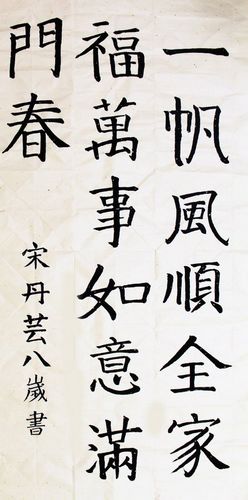 一帆風順全家
福萬事如意滿
門春
宋丹芸八歲書